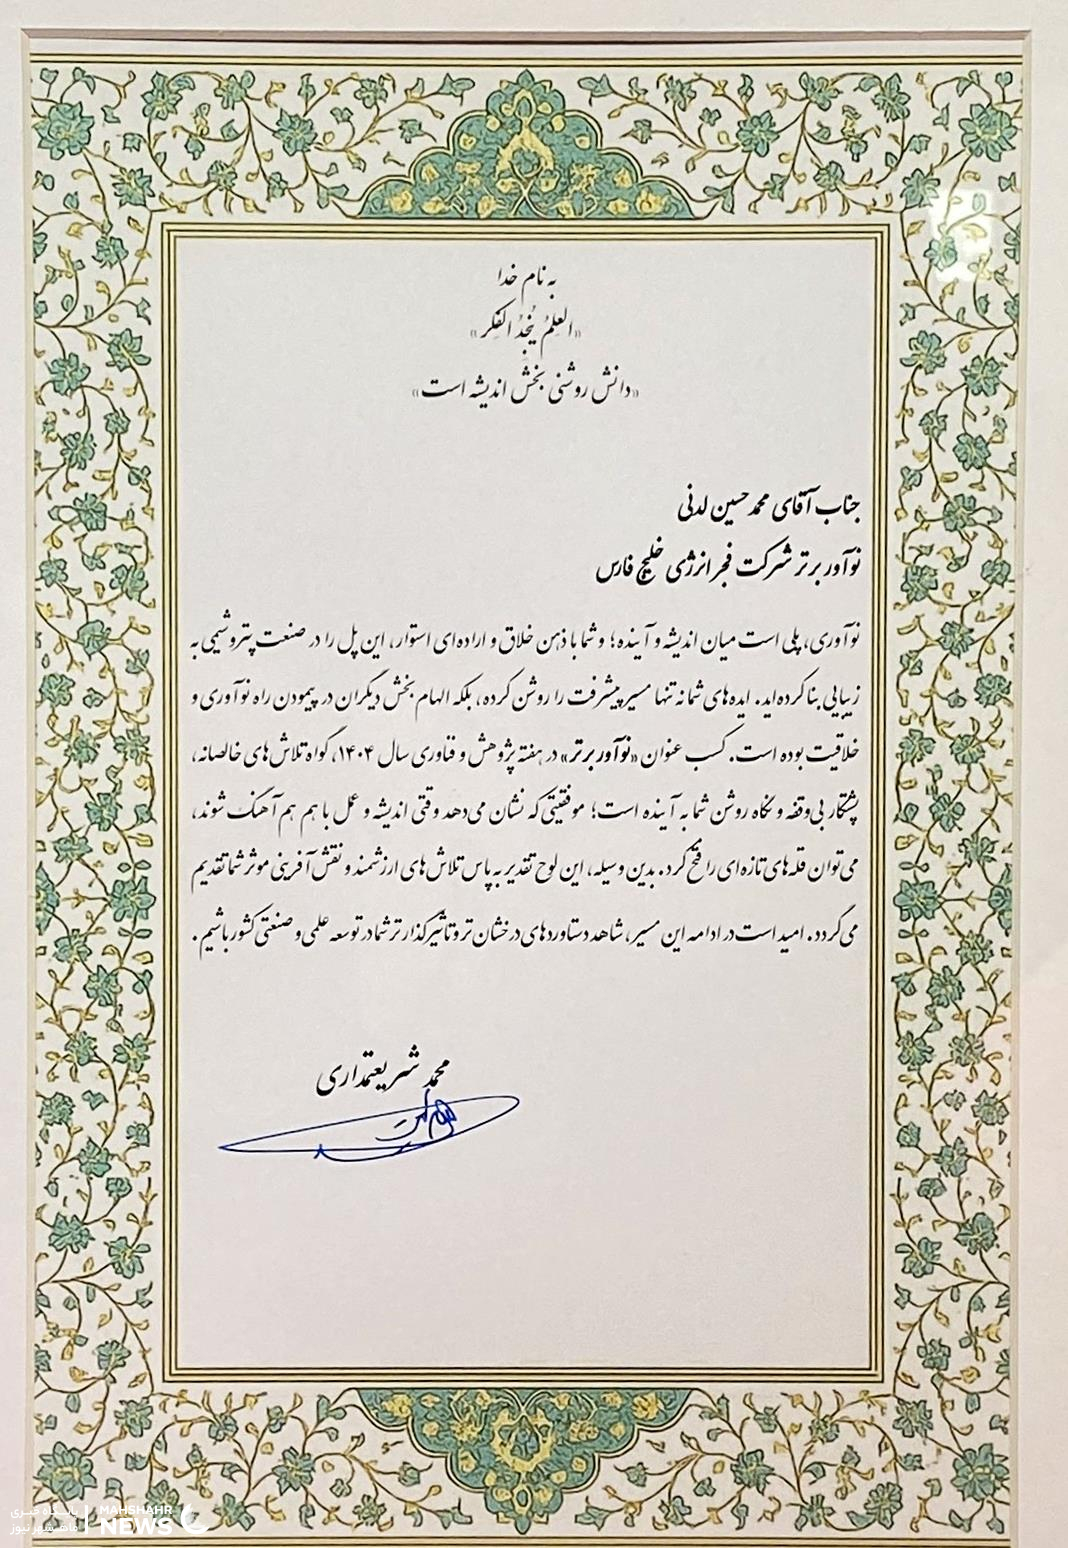 به نام خدا
«العِلمُ یُنجِدُ الفِکر»
«دانش روشنی بخش اندیشه است»
جناب آقای محمد حسین لدنی
نوآور برتر شرکت فجر انرژی خلیج فارس
نوآوری، پلی است میان اندیشه و آینده؛ و شما با ذهن خلاق و اراده‌ای استوار، این پل را در صنعت پتروشیمی به
زیبایی بنا کرده‌اید. ایده‌های شما نه تنها مسیر پیشرفت را روشن کرده، بلکه الهام بخش دیگران در پیمودن راه نوآوری و
خلاقیت بوده است. کسب عنوان «نوآور برتر» در هفته پژوهش و فناوری سال ۱۴۰۴، گواه تلاش‌های خالصانه،
پشتکار بی‌وقفه و نگاه روشن شما به آینده است؛ موفقیتی که نشان می‌دهد وقتی اندیشه و عمل با هم هم آهنگ شوند،
می‌توان قله‌های تازه‌ای را فتح کرد. بدین وسیله، این لوح تقدیر به پاس تلاش‌های ارزشمند و نقش آفرینی موثر شما تقدیم
می‌گردد. امید است در ادامه این مسیر، شاهد دستاوردهای درخشان تر و تاثیرگذارتر شما در توسعه علمی و صنعتی کشور باشیم.
محمد شریعتمداری
پایگاه خبری
ماهشهر نیوز
MAHSHAHR
NEWS